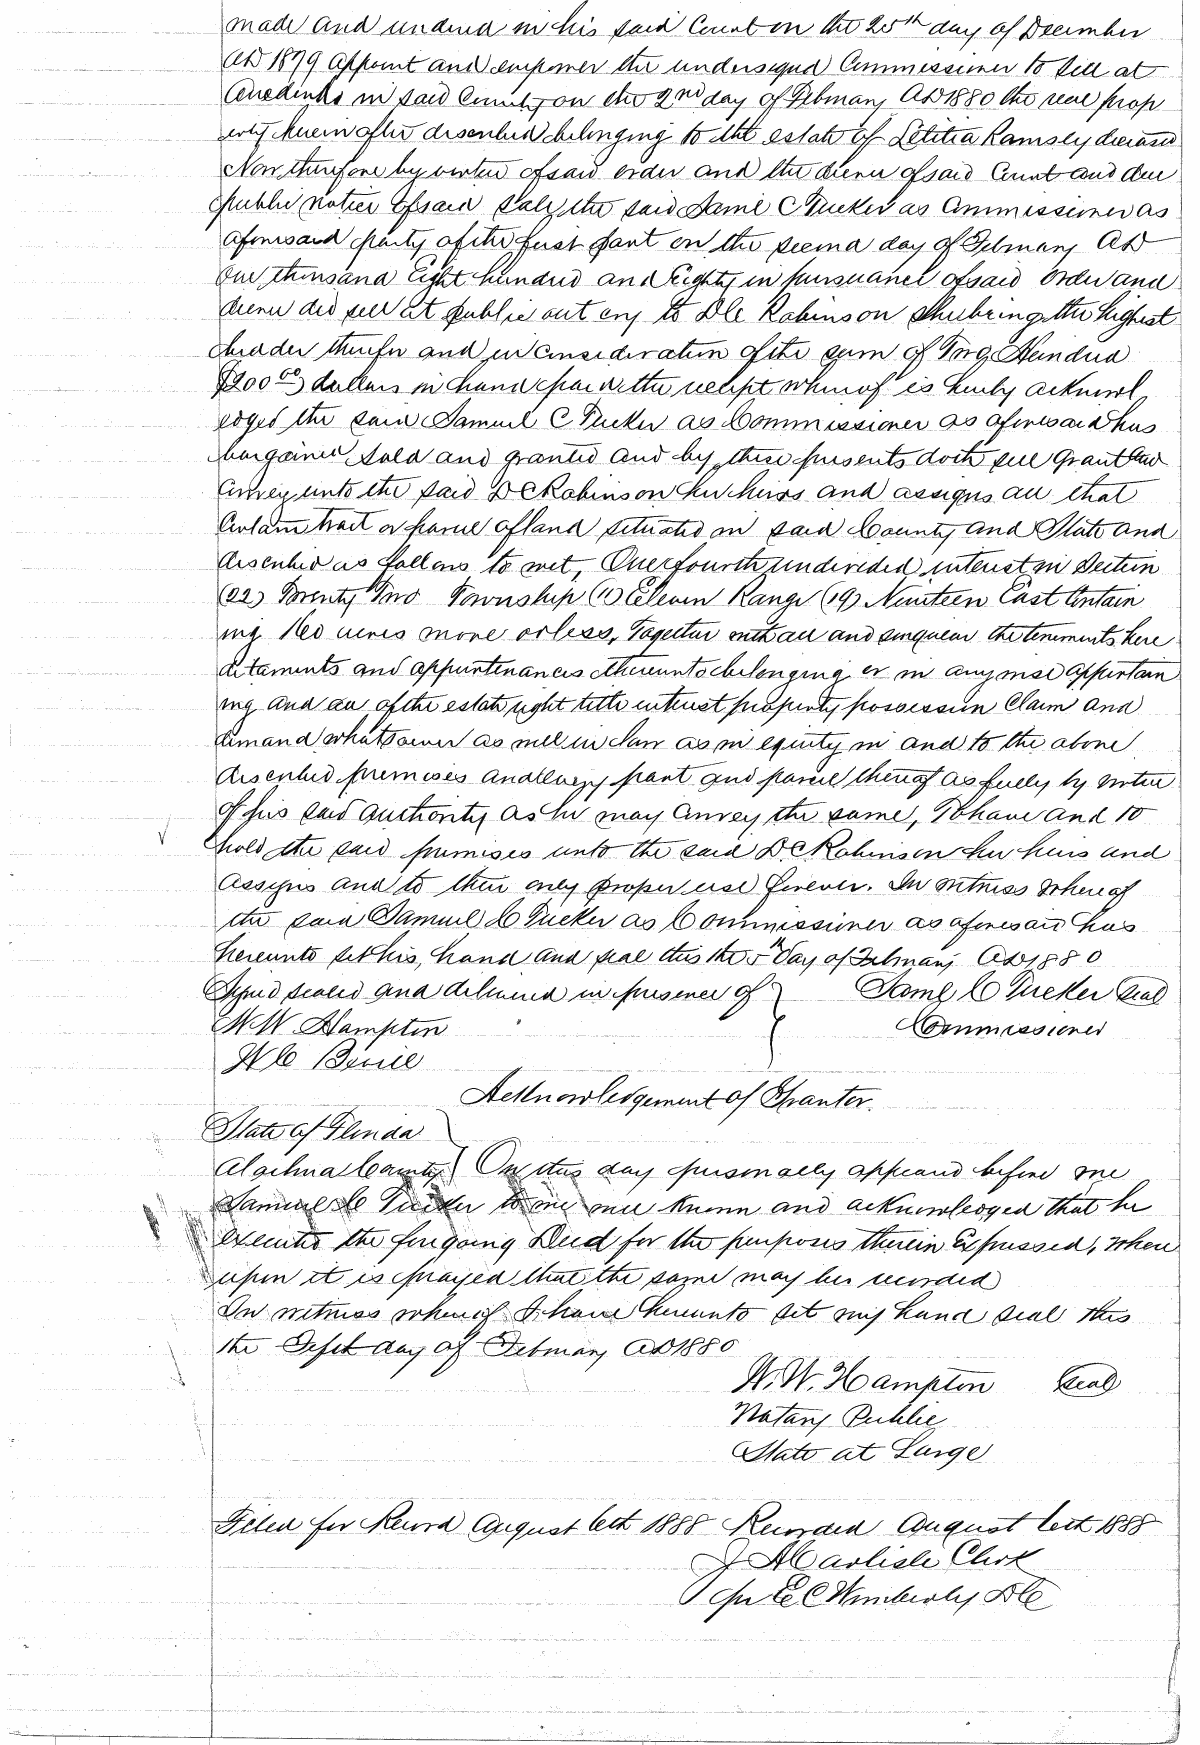 made and entered in his said Court on the 20th day of December
AD 1879 appoint and empower the undersigned Commissioner to sell at
in said County on the 2nd day of February AD 1880 the real prop
erty herein after described belonging to the estate of Letitia Ramsey deceased
Now, therefore by virtue of said order and the decree of said Court and due
public notice of said sale, the said Saml C Tucker as Commissioner as
aforesaid party of the first part on the second day of February AD
One thousand Eight hundred and Eighty in pursuance of said order and
decree did sell at public out cry to D C Robinson she being the highest
bidder therefor and in consideration of the sum of Two Hundred
$200 00 dollars in hand paid the receipt whereof is hereby acknowl
edged the said Samuel C Tucker as Commissioner as aforesaid has
bargained sold and granted and by these presents doth sell grant and
convey unto the said D C Robinson her heirs and assigns all that
Certain tract or parcel of land situated in said County and State and
described as follows to wit, One fourth undivided interest in Section
(22) Twenty Two Township (11) Eleven Range (19) Nineteen East Contain
ing 160 acres more or less, Together with all and singular the tenements here
ditaments and appurtenances thereunto belonging or in any wise appertain
ing and all of the estate right title interest property possession Claim and
demand whatsoever as well in Law as in equity in and to the above
described premises and every part and parcel thereof as fully by virtue
of his said authority as he may convey the same, To have and to
hold the said premises unto the said D. C Robinson her heirs and
assigns and to their only proper use forever. In witness whereof
the said Samuel C Tucker as Commissioner as aforesaid has
hereunto set his, hand and seal this the 5th day of February AD 1880
Signed sealed and delivered in presence of } Saml C Tucker Seal
W W Hampton Commissioner
W C Bevill
Acknowledgement of Grantor.
State of Florida
Alachua County } On this day personally appeared before me
Samuel C Tucker to me well known and acknowledged that he
executed the foregoing Deed for the purposes therein Expressed, where
upon it is prayed that the same may be recorded
In witness whereof I have hereunto set my hand seal this
the day of February AD 1880
W. W. Hampton Seal
Notary Public
State at Large
Filed for Record August 6th 1888 Recorded August 6th 1888
J A Carlisle Clerk
per E C Wimberly DC